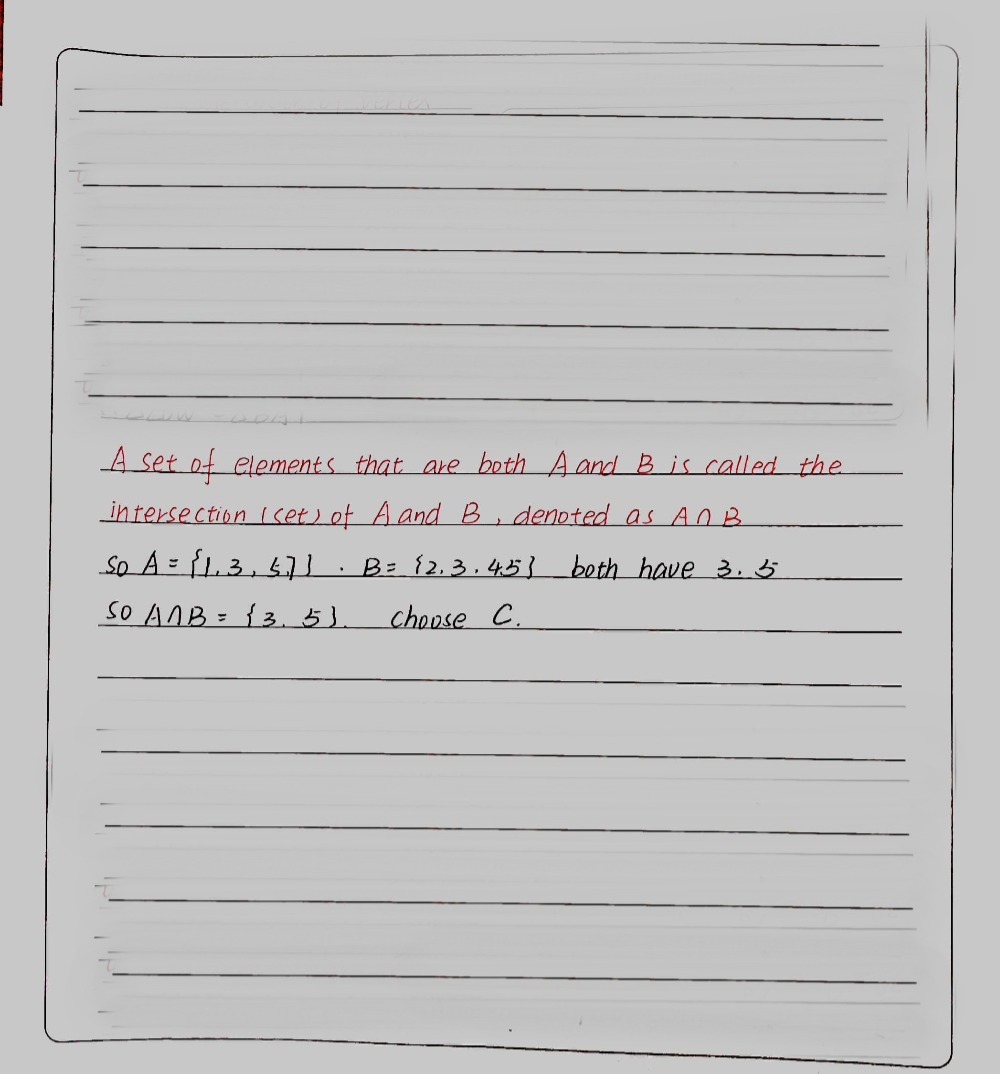 A set of elements that are both A and B is called the
intersection (set) of A and B, denoted as A∩B
so A = {1.3, 5.7} . B = {2.3.4.5} both have 3.5
so A∩B = {3. 5}. choose C.